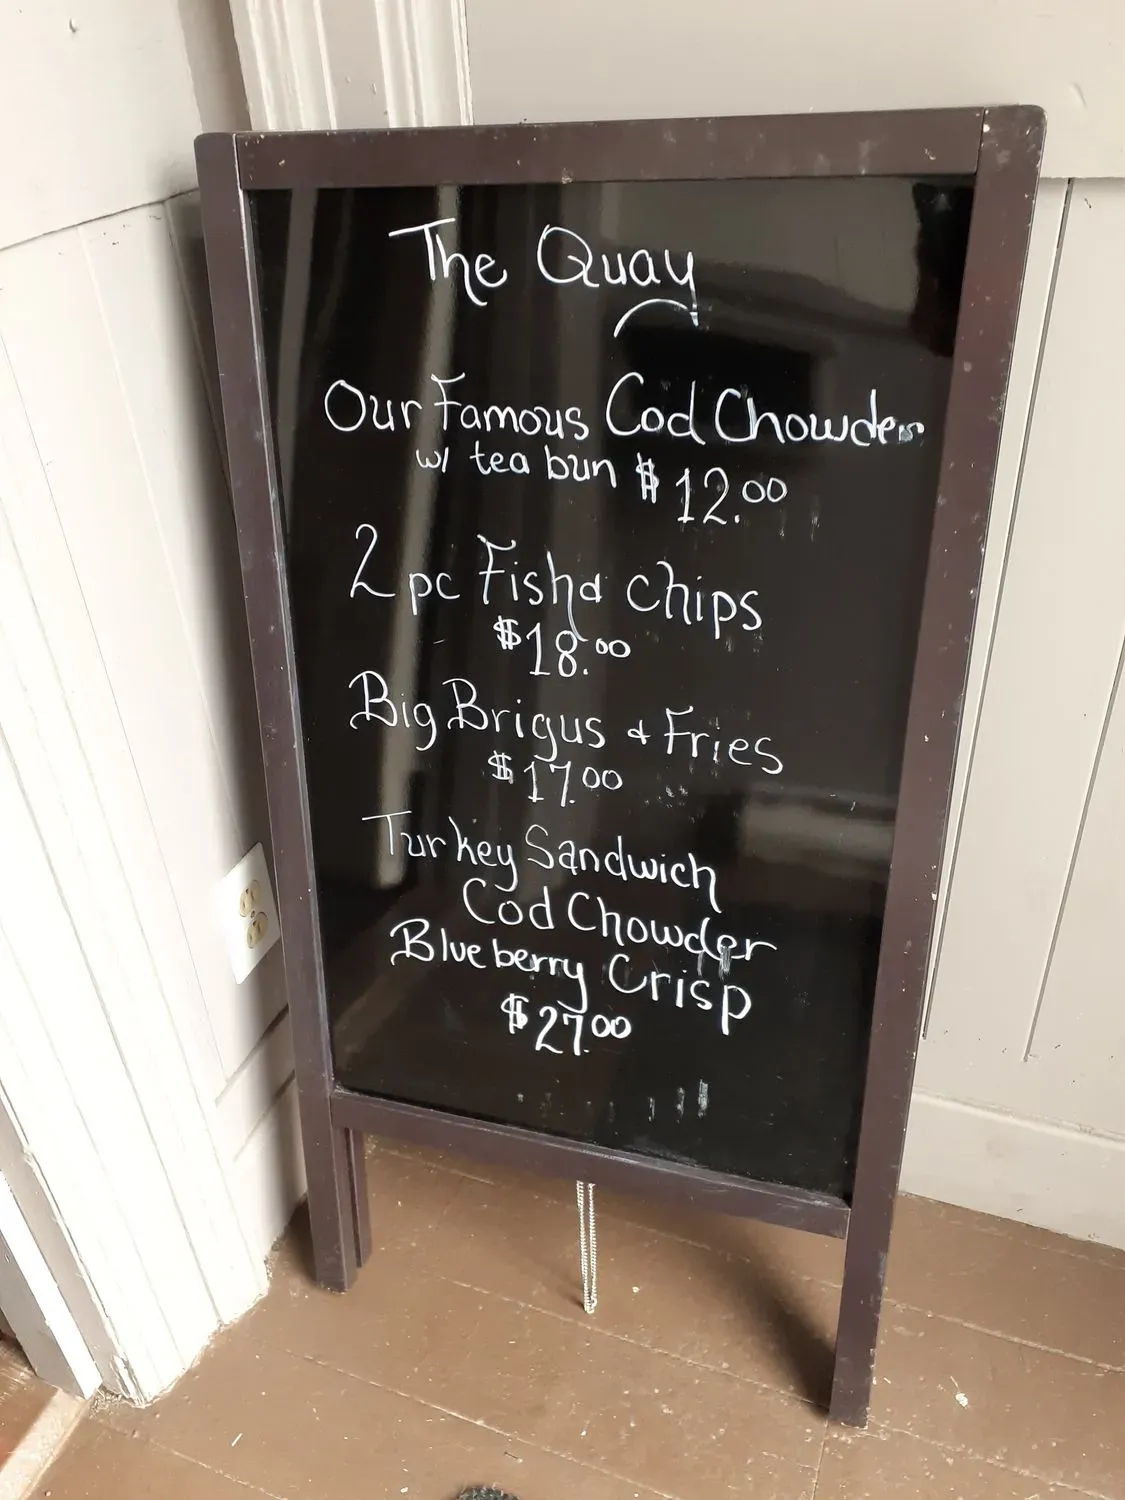 The Quay
Our Famous Cod Chowder
w/ tea bun $12.00
2 pc Fish & chips
$18.00
Big Brigus & Fries
$17.00
Turkey Sandwich
Cod Chowder
Blueberry Crisp
$27.00